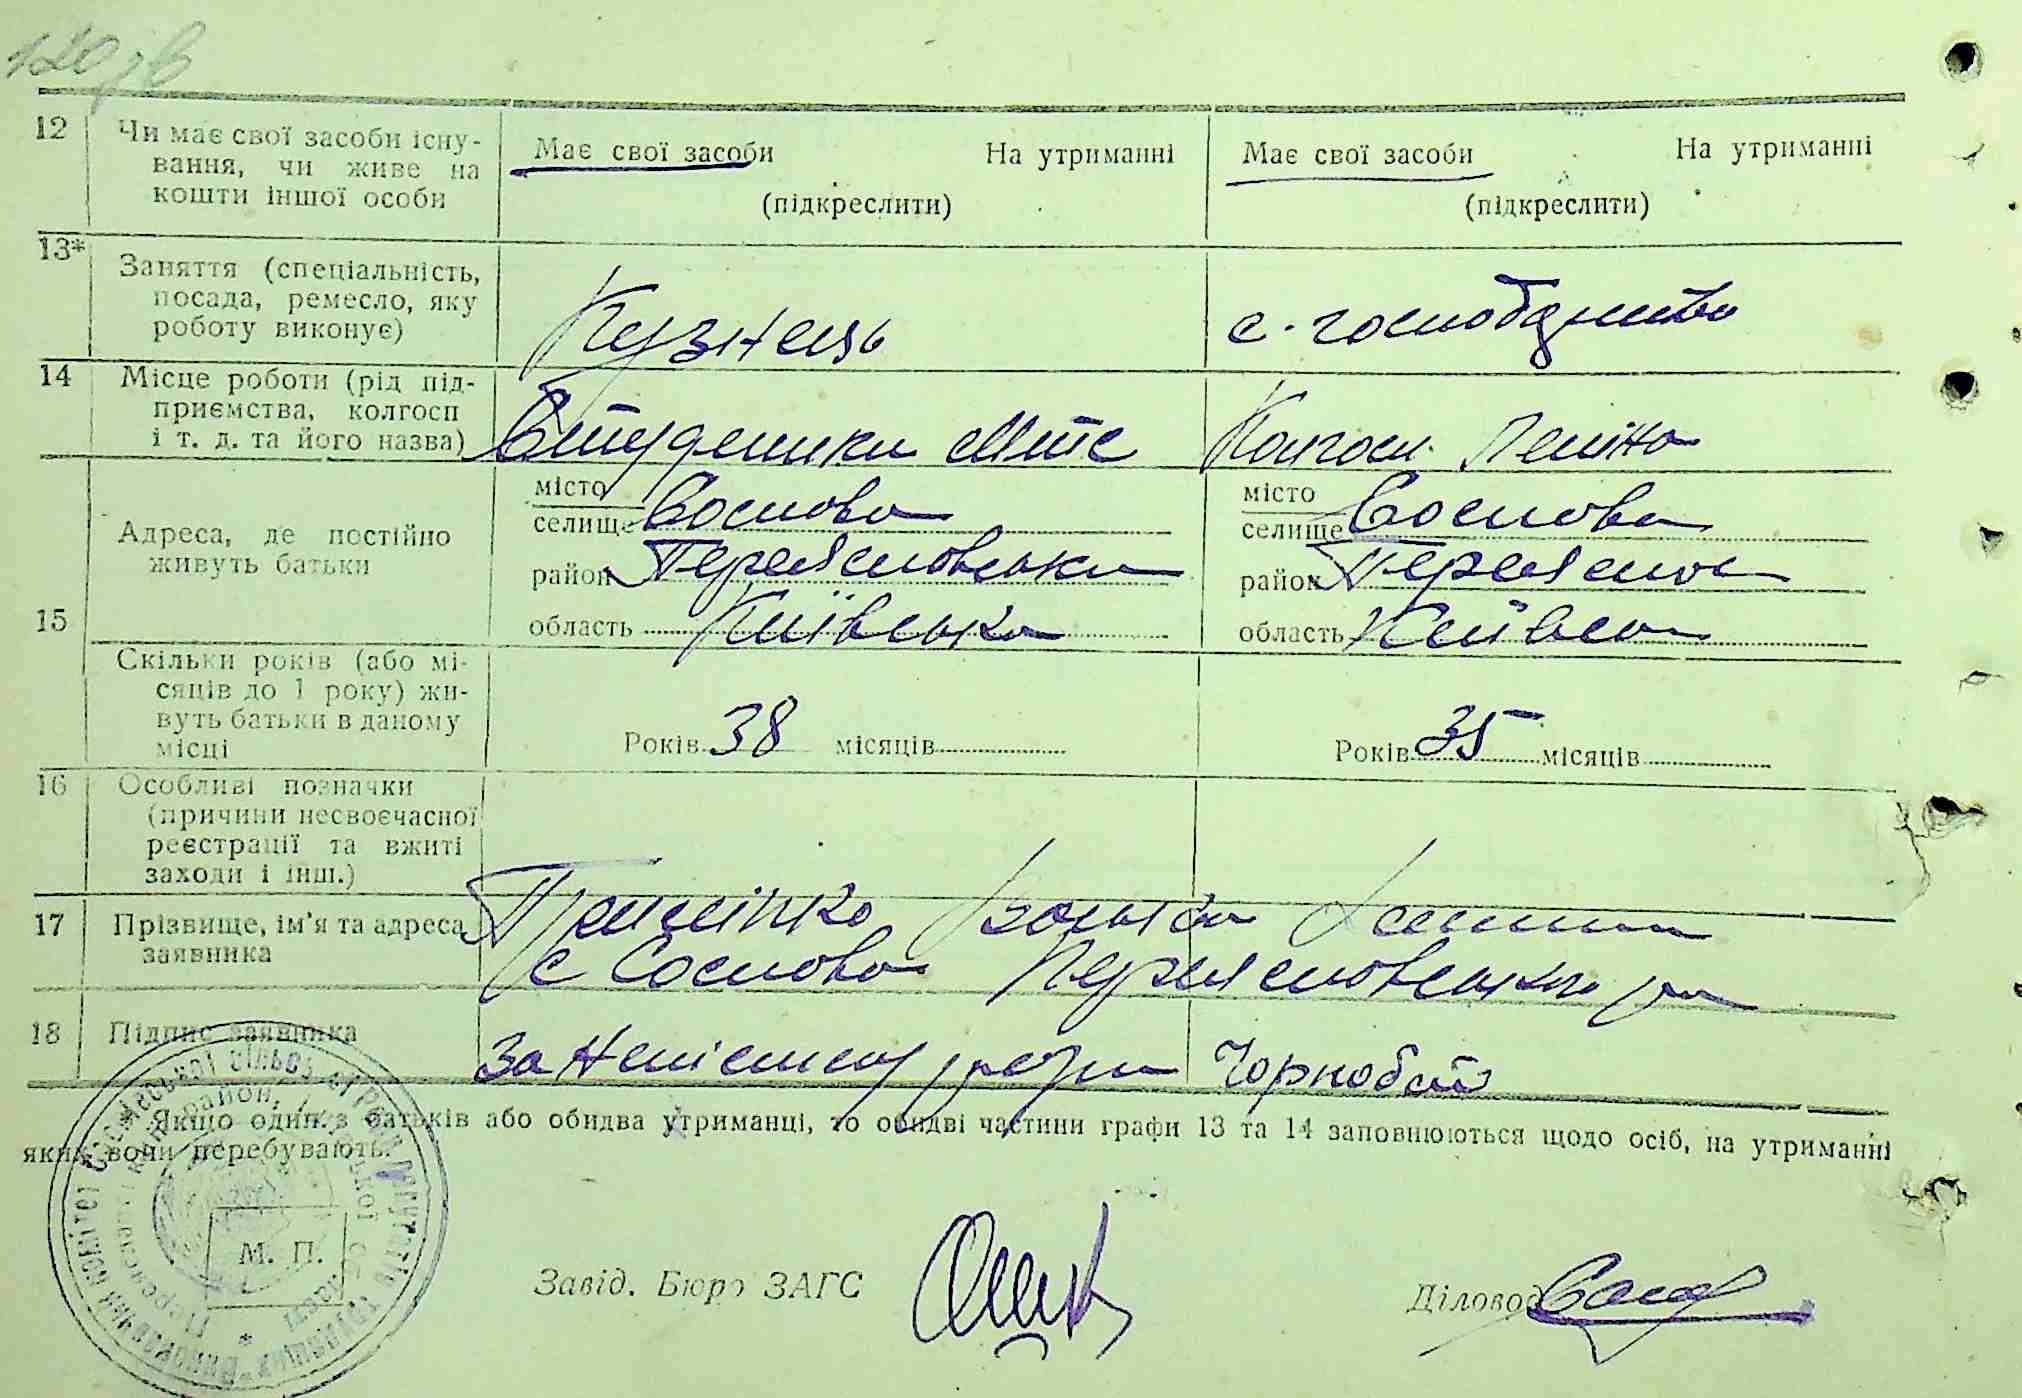 120 зв
12 Чи має свої засоби існу-
вання, чи живе на
кошти іншої особи
Має свої засоби На утриманні
(підкреслити)
Має свої засоби На утриманні
(підкреслити)
13* Заняття (спеціальність,
посада, ремесло, яку
роботу виконує)
Кузнець
с. господарство
14 Місце роботи (рід під-
приємства, колгосп
і т. д. та його назва)
Студеники МТС
Колгосп Леніна
15 Адреса, де постійно
живуть батьки
місто
селище Соснова
район Переяславськи
область Київська
місто
селище Соснова
район Переяслов
область Київсь
Скільки років (або мі-
сяців до 1 року) жи-
вуть батьки в даному
місці
Років 38 місяців
Років 35 місяців
16 Особливі позначки
(причини несвоєчасної
реєстрації та вжиті
заходи і інш.)
17 Прізвище, ім'я та адреса
заявника
с Соснова Переяславського р-ну
18 Підпис заявника
За Чорнобай
Якщо один з батьків або обидва утриманці, то обидві частини графи 13 та 14 заповнюються щодо осіб, на утриманні
яких вони перебувають.
М. П.
Завід. Бюро ЗАГС
Діловод